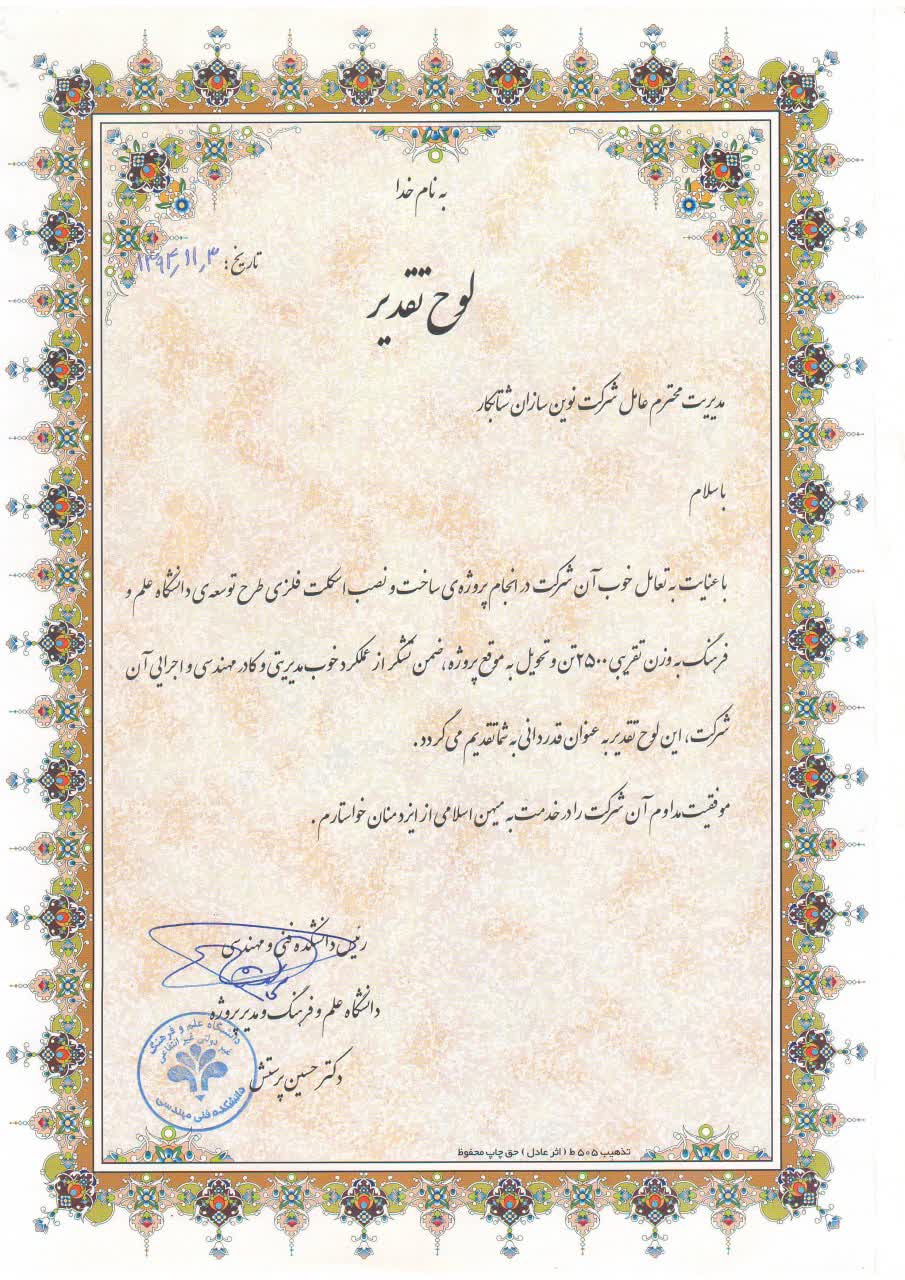 به نام خدا
تاریخ: ۱۳۹۴٫۱۱٫۳
لوح تقدیر
مدیریت محترم عامل شرکت نوین سازان شتابکار
باسلام
با عنایت به تعامل خوب آن شرکت در انجام پروژه‌ی ساخت و نصب اسکلت فلزی طرح توسعه‌ی دانشگاه علم و
فرهنگ به وزن تقریبی ۲۵۰۰تن و تحویل به موقع پروژه، ضمن تشکر از عملکرد خوب مدیریتی و کادر مهندسی و اجرایی آن
شرکت، این لوح تقدیر به عنوان قدردانی به شما تقدیم می گردد.
موفقیت مداوم آن شرکت را در خدمت به میهن اسلامی از ایزد منان خواستارم.
رئیس دانشکده فنی و مهندسی
دانشگاه علم و فرهنگ و مدیر پروژه
دکتر حسین پرستش
دانشگاه علم و فرهنگ
غیر دولتی غیر انتفاعی
دانشکده فنی مهندسی
تذهیب ۵۰۵ ط ( اثر عادل ) حق چاپ محفوظ